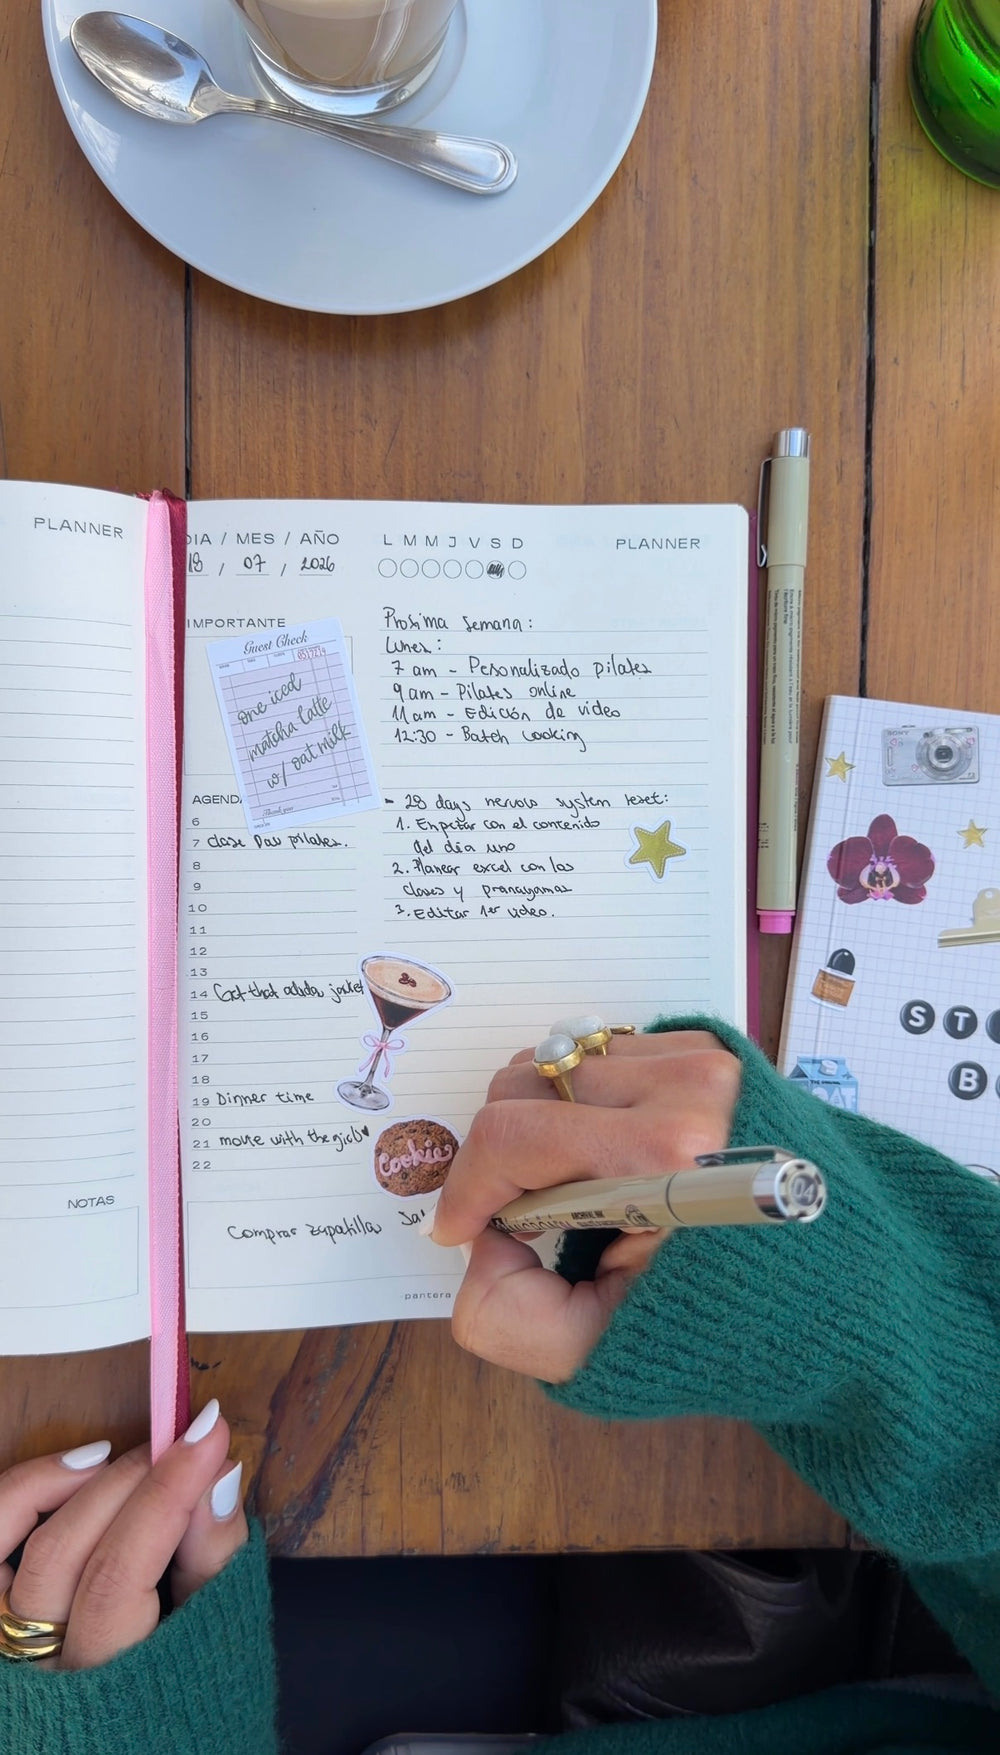 PLANNER
NOTAS
DIA / MES / AÑO
18 / 07 / 2026
L M M J V S D
PLANNER
IMPORTANTE
Guest Check
0517219
one iced
matcha latte
w/ oat milk
Thank you
Proxima semana:
Lunes:
7 am - Pesonalizado pilates
9 am - Pilates online
11 am - Edición de video
12:30 - Batch cooking
- 28 days nervous system reset:
1. Empezar con el contenido
del día uno
2. Planear excel con las
clases y pranayamas
3. Editar 1er video.
AGENDA
6
7 clase Pau pilates.
8
9
10
11
12
13
14 Get that adidas jacket
15
16
17
18
19 Dinner time
20
21 movie with the girls
22
Cookies
Comprar zapatillas
pantera
04
SONY
S T
B
THE ORIGINAL
OAT